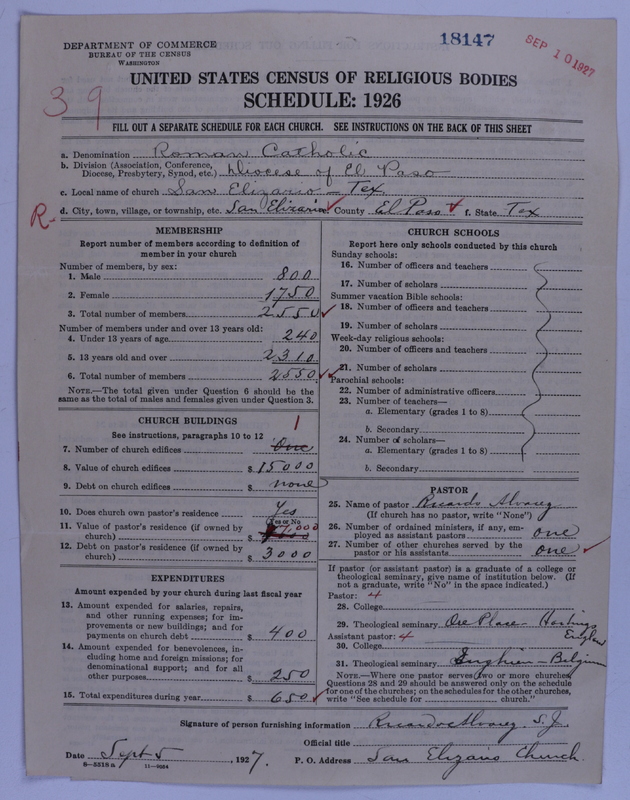 DEPARTMENT OF COMMERCE
BUREAU OF THE CENSUS
WASHINGTON
18147
SEP 10 1927
39
UNITED STATES CENSUS OF RELIGIOUS BODIES
SCHEDULE: 1926
FILL OUT A SEPARATE SCHEDULE FOR EACH CHURCH. SEE INSTRUCTIONS ON THE BACK OF THIS SHEET
a. Denomination Roman Catholic
b. Division (Association, Conference, Diocese, Presbytery, Synod, etc.) Diocese of El Paso
c. Local name of church San Elizario – Tex
R- d. City, town, village, or township, etc. San Elizario County El Paso f. State Tex
MEMBERSHIP
Report number of members according to definition of
member in your church
Number of members, by sex:
1. Male 800
2. Female 1750
3. Total number of members 2550
Number of members under and over 13 years old:
4. Under 13 years of age 240
5. 13 years old and over 2310
6. Total number of members 2550
NOTE.—The total given under Question 6 should be
same as the total of males and females given under Question 3.
CHURCH BUILDINGS
See instructions, paragraphs 10 to 12
7. Number of church edifices One 1
8. Value of church edifices $ 15000
9. Debt on church edifices $ none
10. Does church own pastor's residence Yes
(Yes or No)
11. Value of pastor's residence (if owned by
church) $ 000
12. Debt on pastor's residence (if owned by
church) $ 3000
EXPENDITURES
Amount expended by your church during last fiscal year
13. Amount expended for salaries, repairs,
and other running expenses; for im-
provements or new buildings; and for
payments on church debt $ 400
14. Amount expended for benevolences, in-
cluding home and foreign missions; for
denominational support; and for all
other purposes $ 250
15. Total expenditures during year $ 650
CHURCH SCHOOLS
Report here only schools conducted by this church
Sunday schools:
16. Number of officers and teachers
17. Number of scholars
Summer vacation Bible schools:
18. Number of officers and teachers
19. Number of scholars
Week-day religious schools:
20. Number of officers and teachers
21. Number of scholars
Parochial schools:
22. Number of administrative officers
23. Number of teachers—
a. Elementary (grades 1 to 8)
b. Secondary
24. Number of scholars—
a. Elementary (grades 1 to 8)
b. Secondary
PASTOR
25. Name of pastor Ricardo Alvarez
(If church has no pastor, write "None")
26. Number of ordained ministers, if any, em-
ployed as assistant pastors one
27. Number of other churches served by the
pastor or his assistants one
If pastor (or assistant pastor) is a graduate of a college or
theological seminary, give name of institution below. (If
not a graduate, write "No" in the space indicated.)
Pastor: 4
28. College
29. Theological seminary Ore Place – Hastings
Assistant pastor: 4
30. College
31. Theological seminary Enghien – Belgium
NOTE.—Where one pastor serves two or more churches,
Questions 28 and 29 should be answered only on the schedule
for one of the churches; on the schedules for the other churches,
write "See schedule for church."
Signature of person furnishing information Ricardo Alvarez, S.J.
Official title
Date Sept 5, 1927. P. O. Address San Elizario Church.
8—5518 a 11—9034